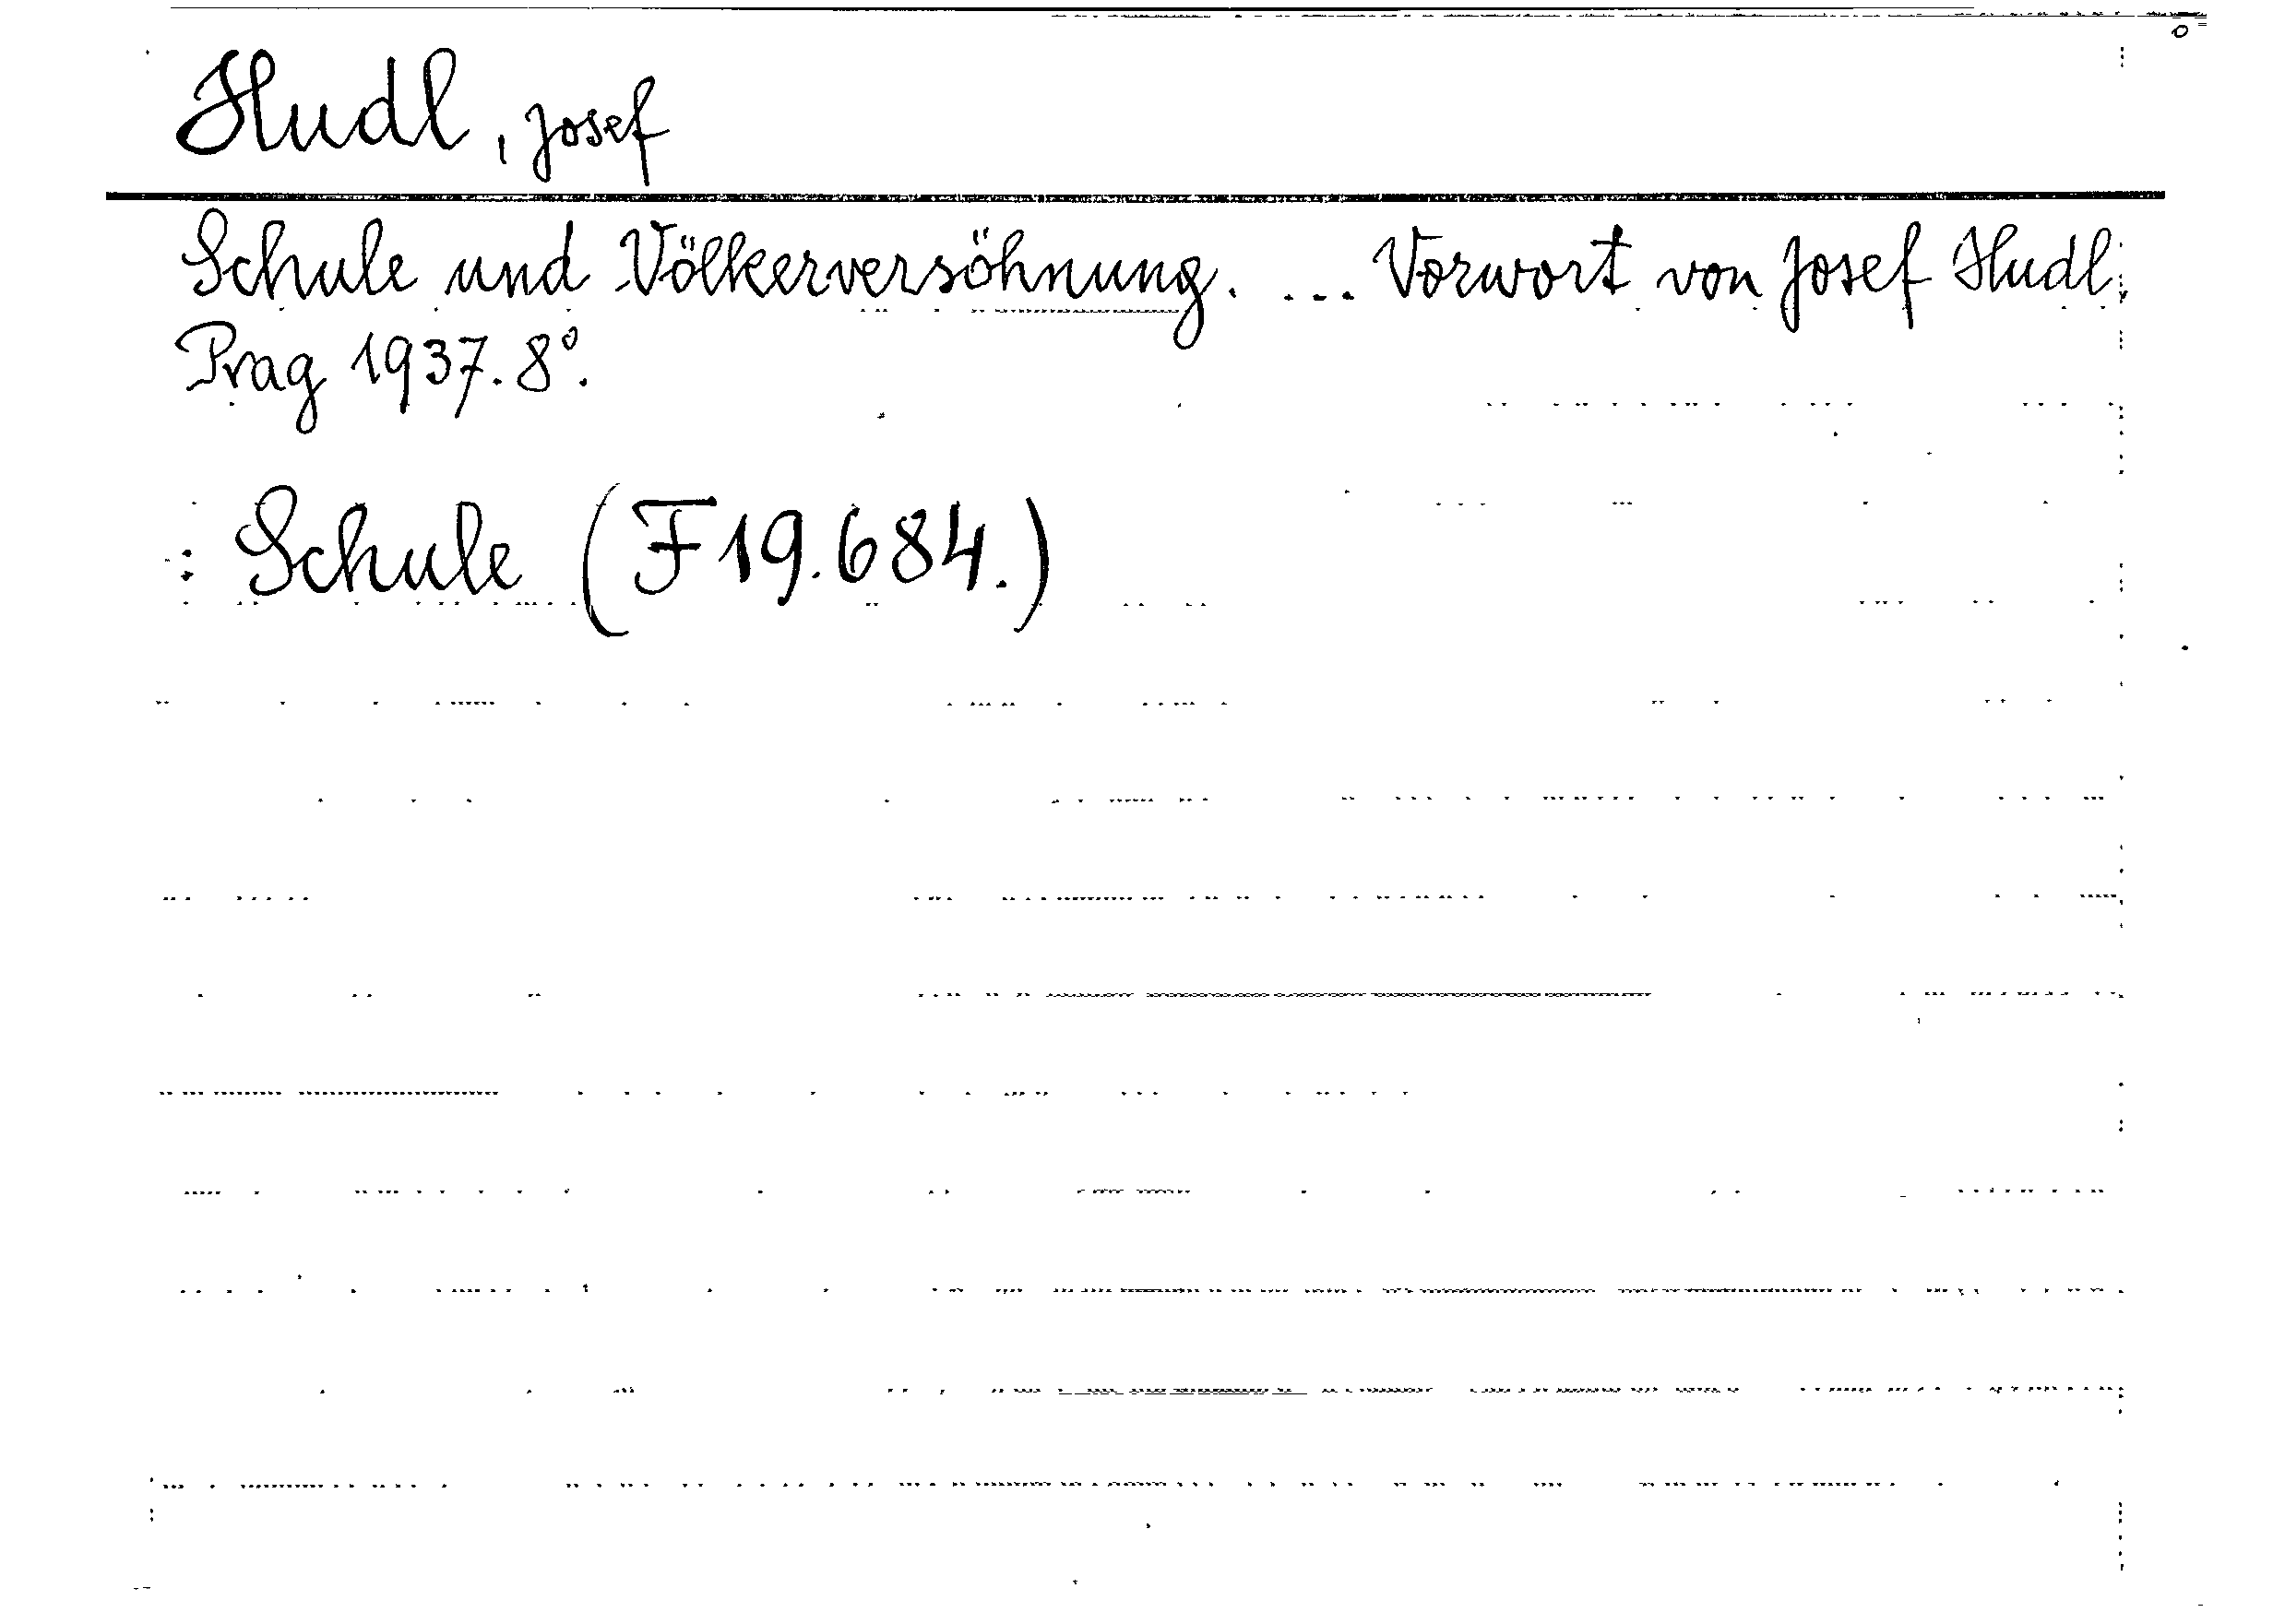 Hudl, Josef
Schule und Völkerversöhnung. ... Vorwort von Josef Hudl.
Prag 1937. 8°.
: Schule (F 19.684.)